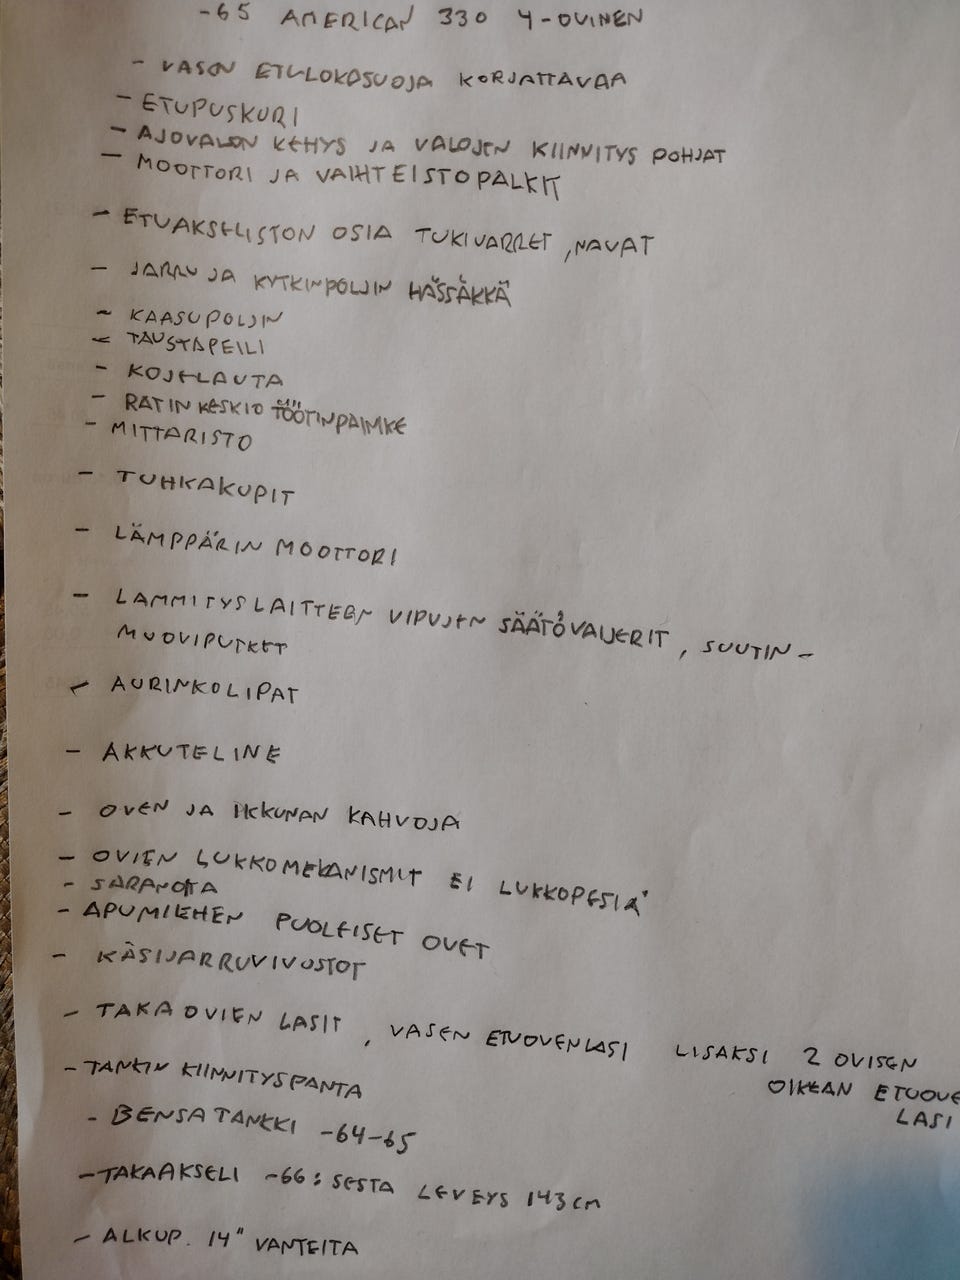 -65 AMERICAN 330 4-OVINEN
- VASEN ETULOKASUOJA KORJATTAVAA
- ETUPUSKURI
- AJOVALON KEHYS JA VALOJEN KIINNITYS POHJAT
- MOOTTORI JA VAIHTEISTOPALKIT
- ETUAKSELISTON OSIA TUKIVARRET, NAVAT
- JARRU JA KYTKINPOLJIN HÄSSÄKKÄ
- KAASUPOLJIN
- TAUSTAPEILI
- KOJELAUTA
- RATIN KESKIO TÖÖTINPAINIKE
- MITTARISTO
- TUHKAKUPIT
- LÄMPPÄRIN MOOTTORI
- LAMMITYSLAITTEEN VIPUJEN SÄÄTÖVAIJERIT, SUUTIN-
MUOVIPUTKET
- AURINKOLIPAT
- AKKUTELINE
- OVEN JA IKKUNAN KAHVOJA
- OVIEN LUKKOMEKANISMIT EI LUKKOPESIÄ
- SARANOITA
- APUMIEHEN PUOLEISET OVET
- KÄSIJARRUVIVUSTOT
- TAKAOVIEN LASIT, VASEN ETUOVENLASI LISAKSI 2 OVISEN
OIKEAN ETUOVE
LASI
- TANKIN KIINNITYSPANTA
- BENSATANKKI -64-65
- TAKAAKSELI -66:SESTA LEVEYS 143cm
- ALKUP. 14" VANTEITA